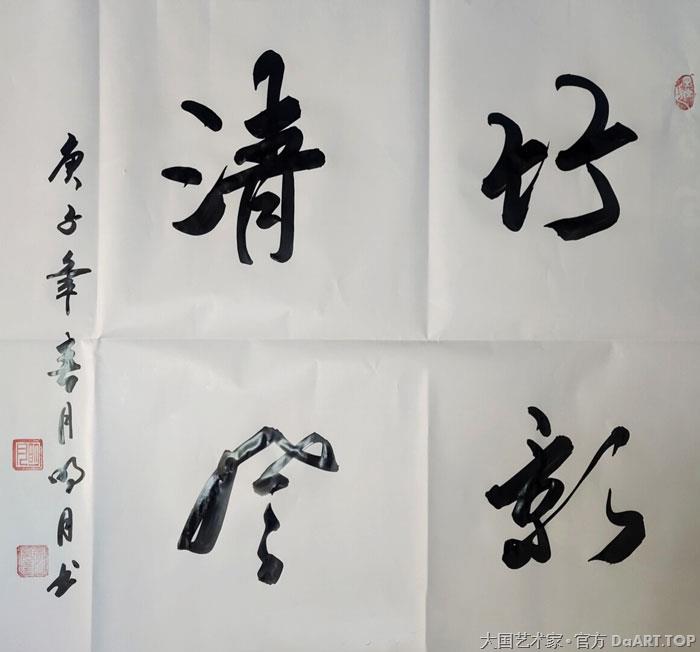 竹影
清風
庚子年春月明月书
大国艺术家·官方 DaART.TOP